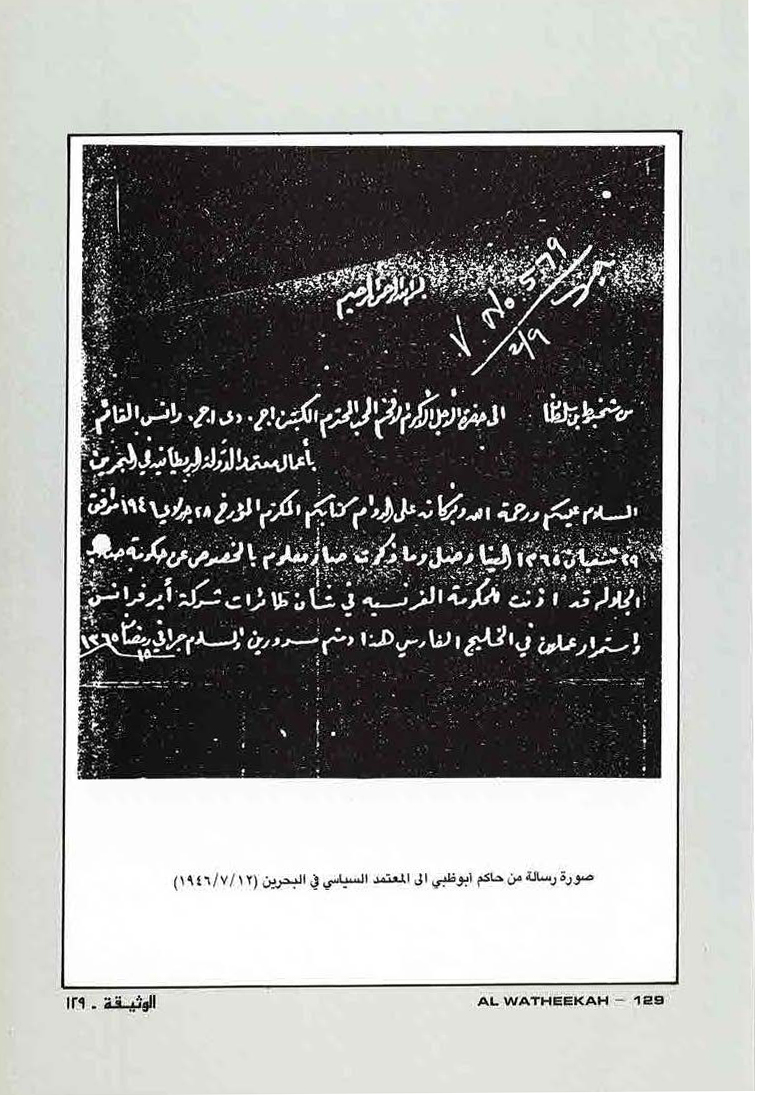 بسم الله الرحمن الرحيم
V. No. 5.79
2/9
من شخبوط بن سلطان الى حضرة الاجل الاكرم الافخم المحب المحترم الكبتن اج. دى اج. رانس القائم
بأعمال معتمد الدولة البريطانيه في البحرين
السلام عليكم ورحمة الله وبركاته على الدوام كتابكم المكرم المؤرخ ٢٨ جولاي ١٩٤٦ موافق
٢٩ شعبان ١٣٦٥ الينا وصل وما ذكرت صار معلوم بالخصوص عن حكومة
الجلاله قد اذنت للحكومة الفرنسيه في شأن طائرات شركة أير فرانس
وأستمرار عملهن في الخليج الفارسي هذا ودمتم مسرورين والسلام جرا في رمضان ١٣٦٥
صورة رسالة من حاكم ابوظبي الى المعتمد السياسي في البحرين (١٩٤٦/٧/١٢)
الوثيقة - ١٢٩
AL WATHEEKAH – 129